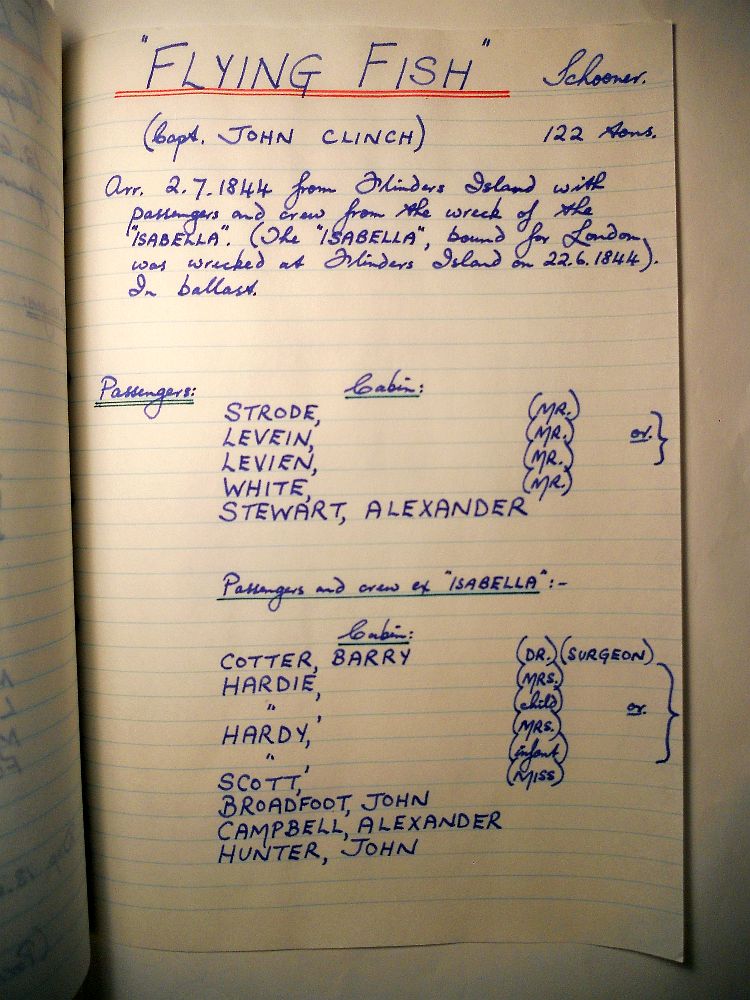 "FLYING FISH" Schooner.
(Capt. JOHN CLINCH) 122 tons.
Arr. 2.7.1844 from Flinders Island with
passengers and crew from the wreck of the
"ISABELLA". (The "ISABELLA", bound for London,
was wrecked at Flinders Island on 22.6.1844).
In ballast.
Passengers: Cabin:
STRODE, (MR.)
LEVEIN, (MR.) or. }
LEVIEN, (MR.)
WHITE, (MR.)
STEWART, ALEXANDER
Passengers and crew ex "ISABELLA" :-
Cabin:
COTTER, BARRY (DR.) (SURGEON)
HARDIE, (MRS.)
" , (child) or. }
HARDY, (MRS.)
" , (infant)
SCOTT, (MISS)
BROADFOOT, JOHN
CAMPBELL, ALEXANDER
HUNTER, JOHN